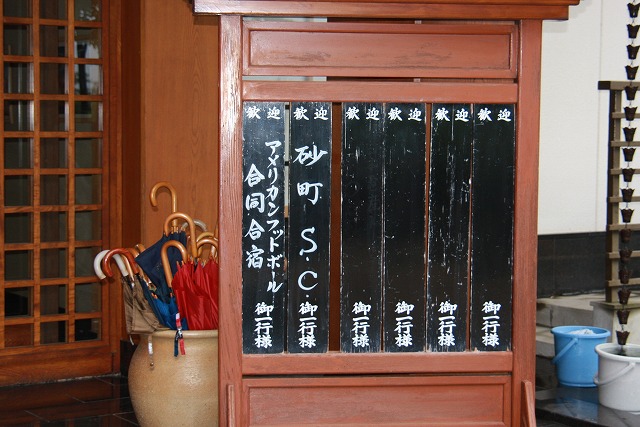 歓迎
アメリカンフットボール
合同合宿
御一行様
歓迎
砂町 S.C.
御一行様
歓迎
御一行様
歓迎
御一行様
歓迎
御一行様
歓迎
御一行様